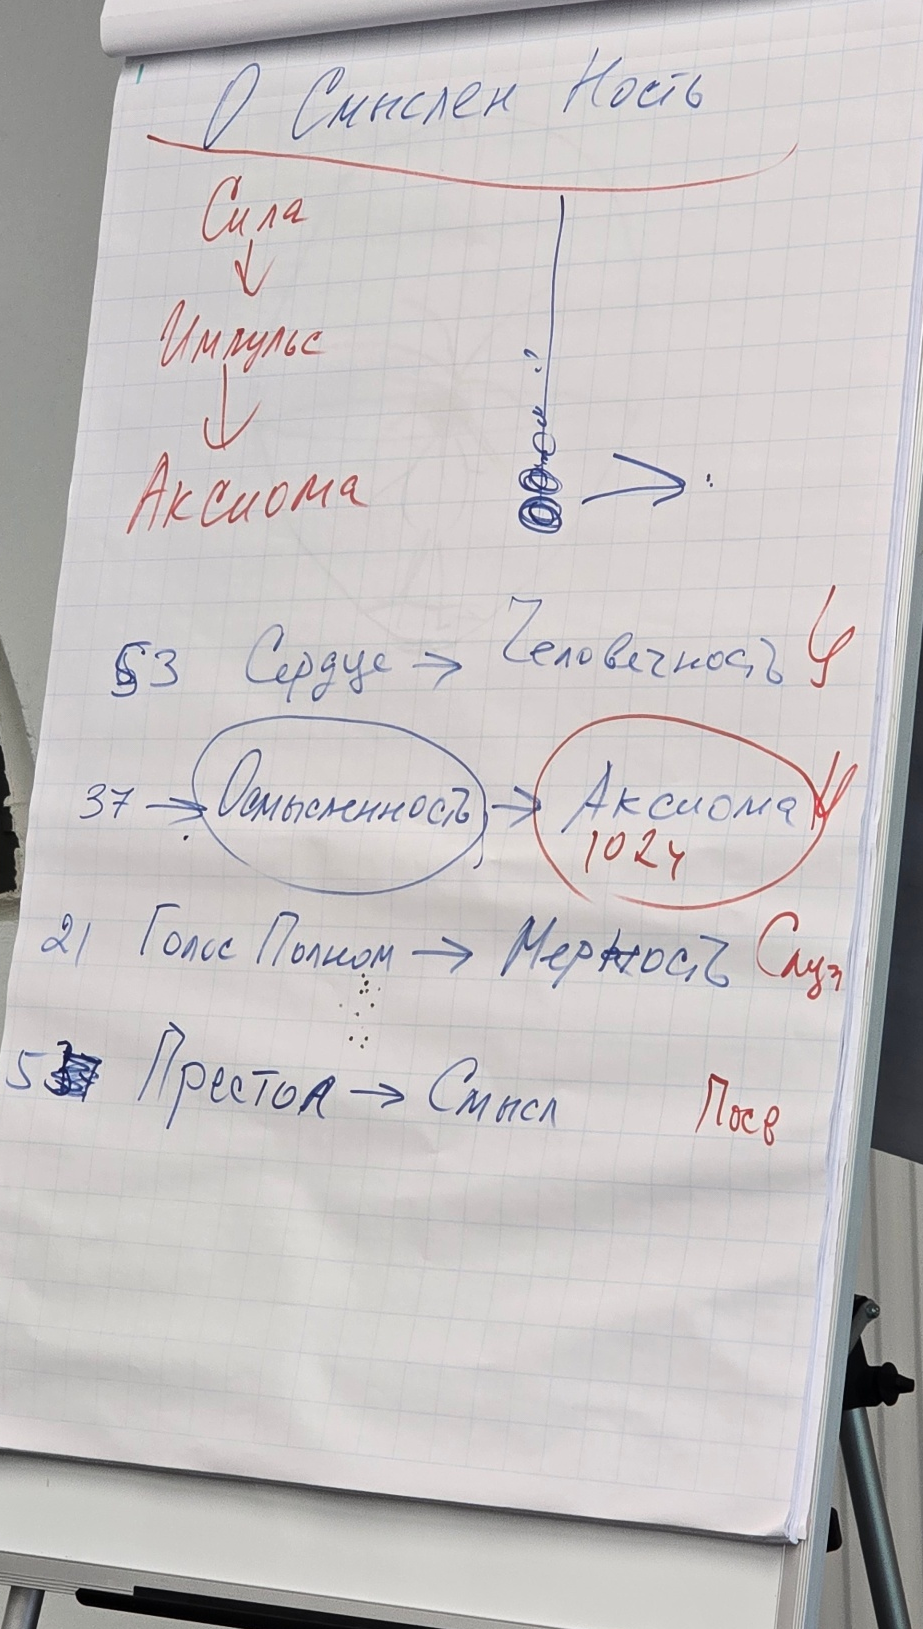 О Смыслен Ность
Сила
Импульс
Аксиома
53 Сердце → Человечность Ч
37 → Осмысленность → Аксиома
1024
21 Голос Полном → Мерность Служ
5 Престол → Смысл Посв